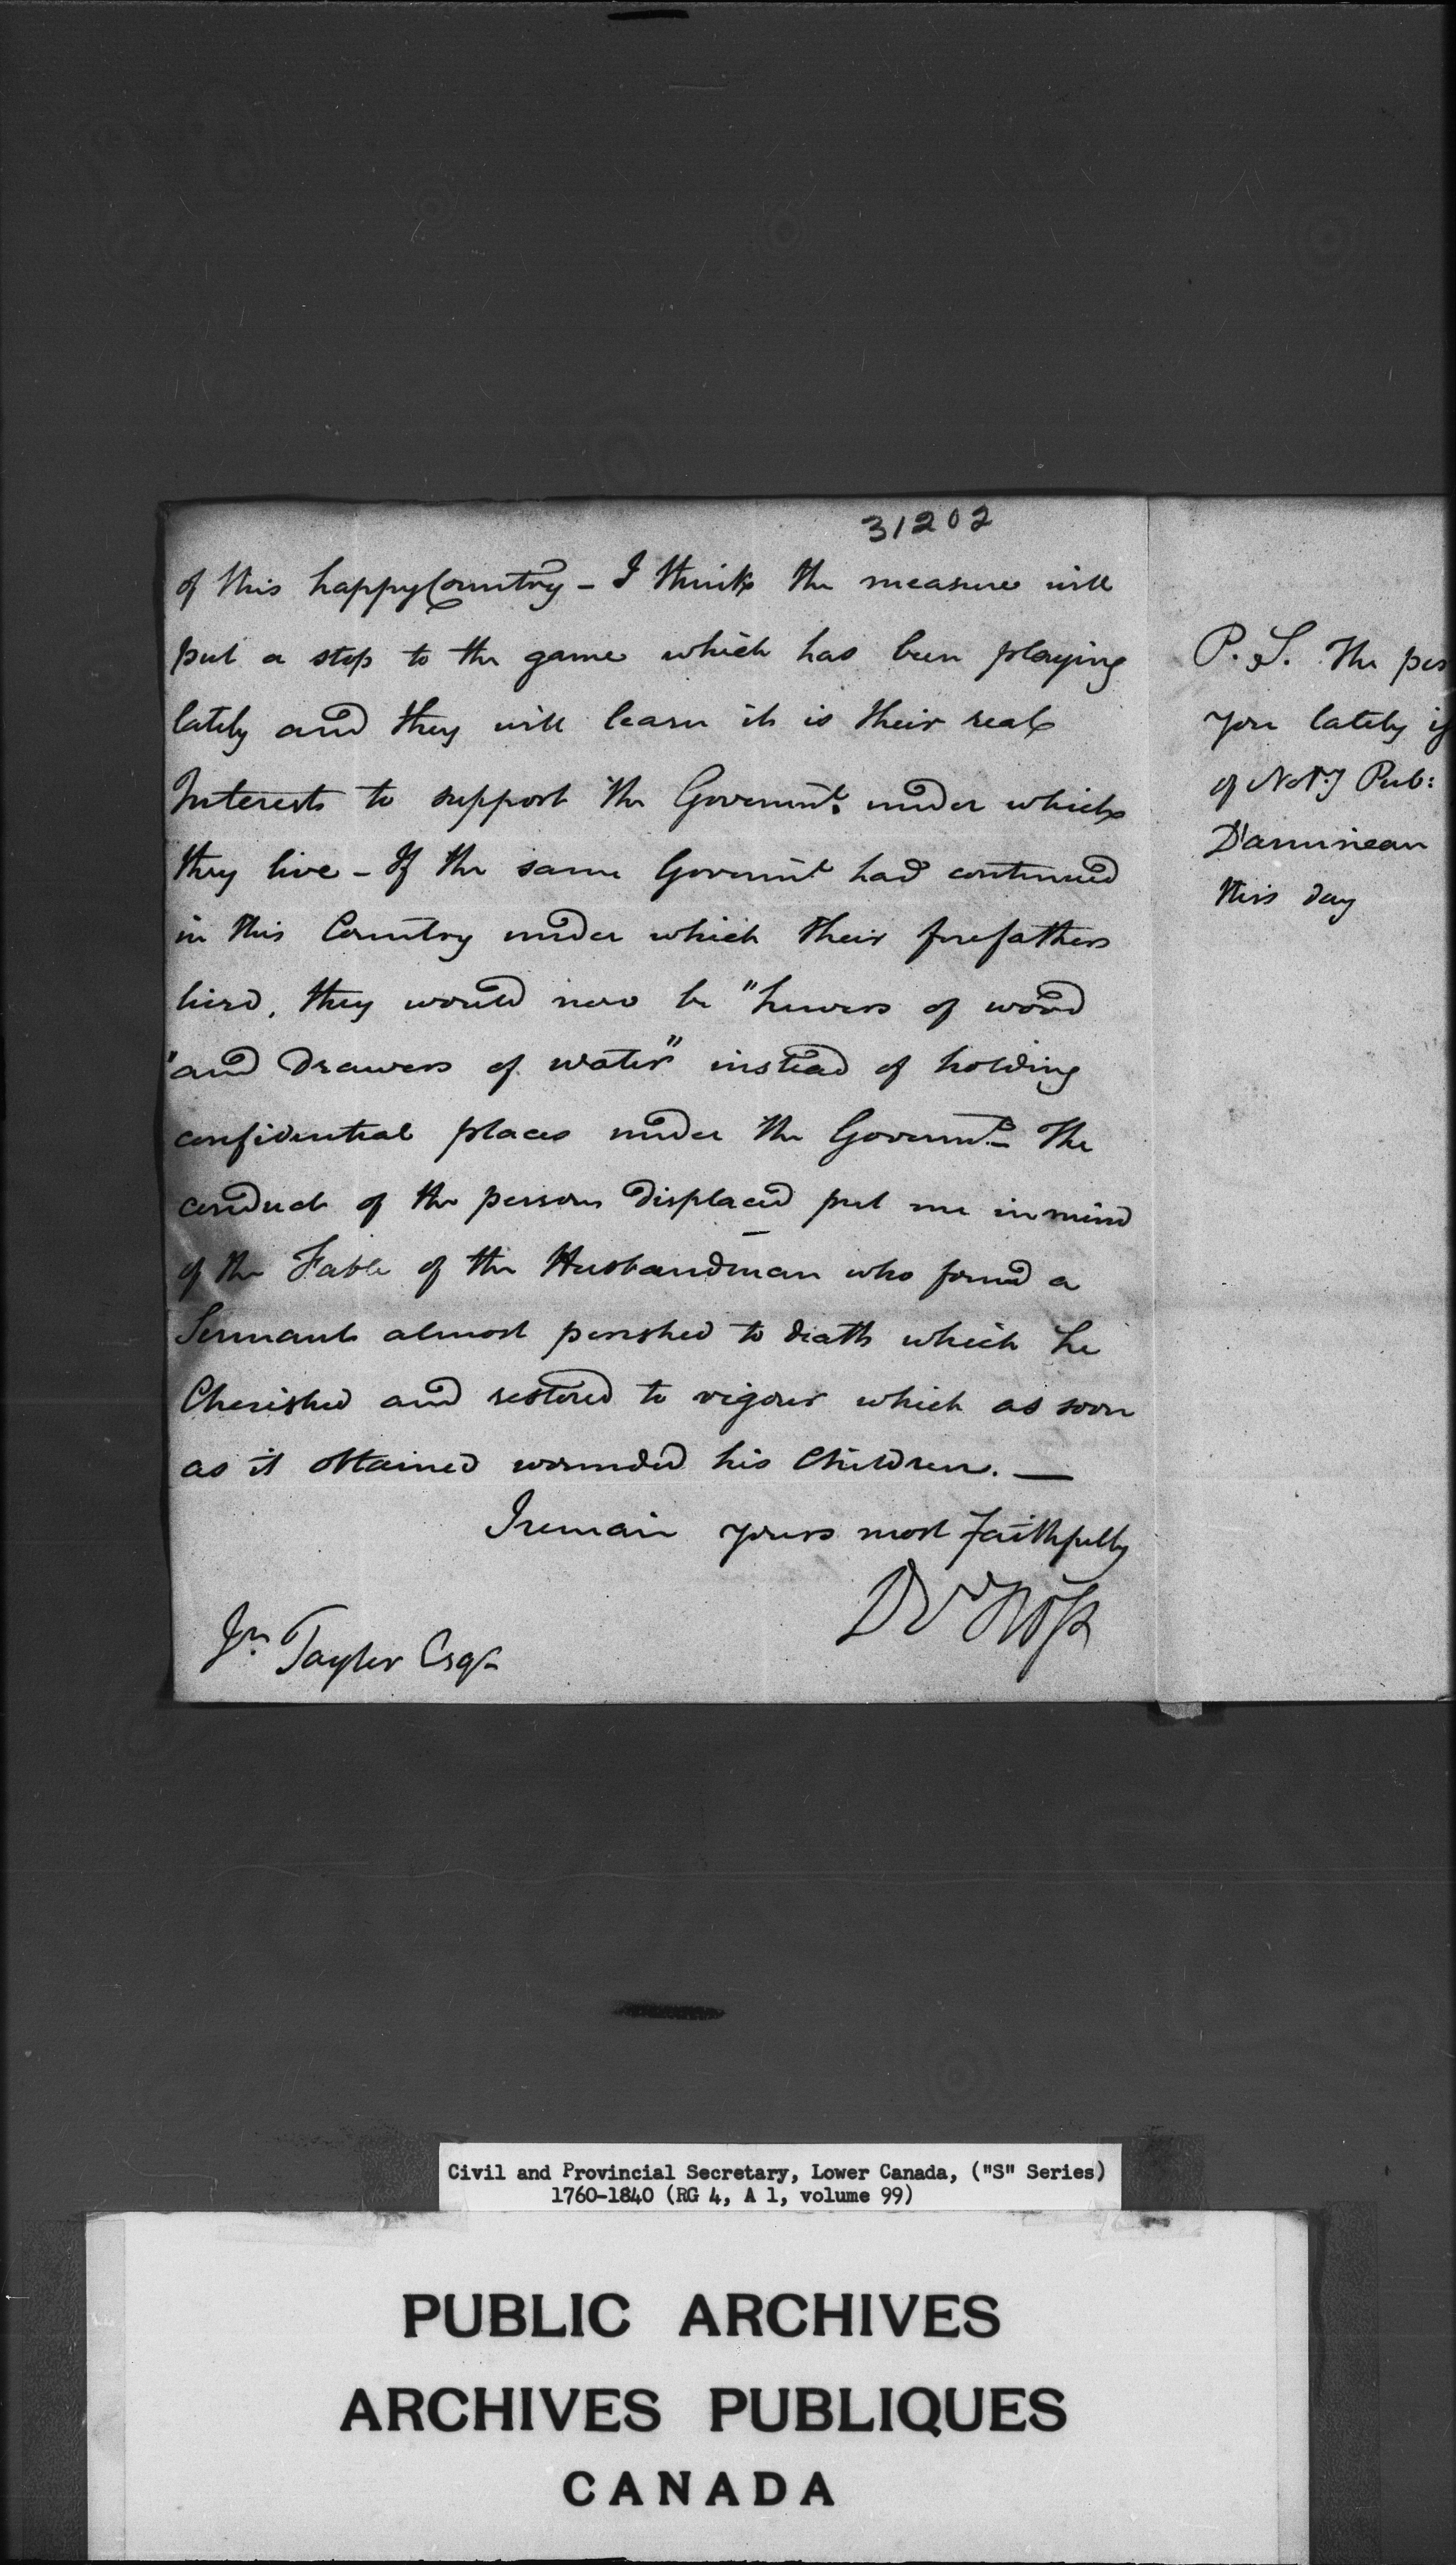 31202
of this happy Country - I think the measure will
put a stop to the game which has been playing
lately and they will learn it is their real
Interests to support the Governmt. under which
they live - If the same Governmt had continued
in this Country under which their forefathers
lived, they would now be "hewers of wood
"and Drawers of water" instead of holding
confidential places under the Governmt. - The
conduct of the persons displaced put me in mind
of the Fable of the Husbandman who found a
almost perished to death which he
Cherished and restored to vigour which as soon
as it obtained wounded his Children. —
I remain yours most faithfully
Dd Ross
Jn. Taylor Esqr
P. S. The per
you lately if
of Noty Pub:
this day
Civil and Provincial Secretary, Lower Canada, ("S" Series)
1760-1840 (RG 4, A 1, volume 99)
PUBLIC ARCHIVES
ARCHIVES PUBLIQUES
CANADA